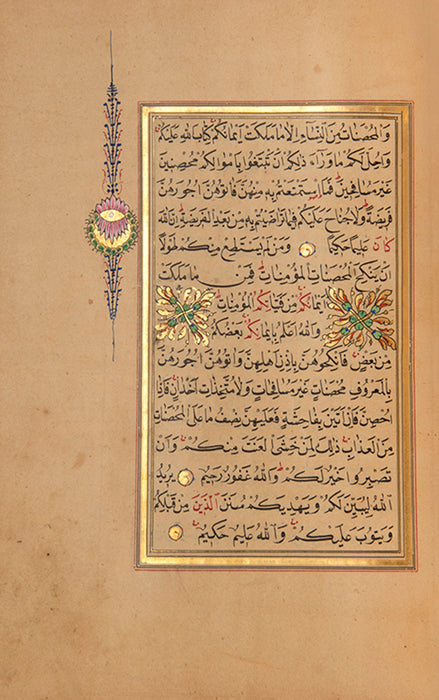 والمحصنات من النساء الا ما ملكت ايمانكم كتاب الله عليكم
واحل لكم ما وراء ذلكم ان تبتغوا باموالكم محصنين
غير مسافحين فما استمتعتم به منهن فاتوهن اجورهن
فريضة ولا جناح عليكم فيما تراضيتم به من بعد الفريضة ان الله
كان عليما حكيما ومن لم يستطع منكم طولا
ان ينكح المحصنات المؤمنات فمن ما ملكت
ايمانكم من فتياتكم المؤمنات
والله اعلم بايمانكم بعضكم
من بعض فانكحوهن باذن اهلهن واتوهن اجورهن
بالمعروف محصنات غير مسافحات ولا متخذات اخدان فاذا
احصن فان اتين بفاحشة فعليهن نصف ما على المحصنات
من العذاب ذلك لمن خشى العنت منكم وان
تصبروا خير لكم والله غفور رحيم يريد
الله ليبين لكم ويهديكم سنن الذين من قبلكم
ويتوب عليكم والله عليم حكيم